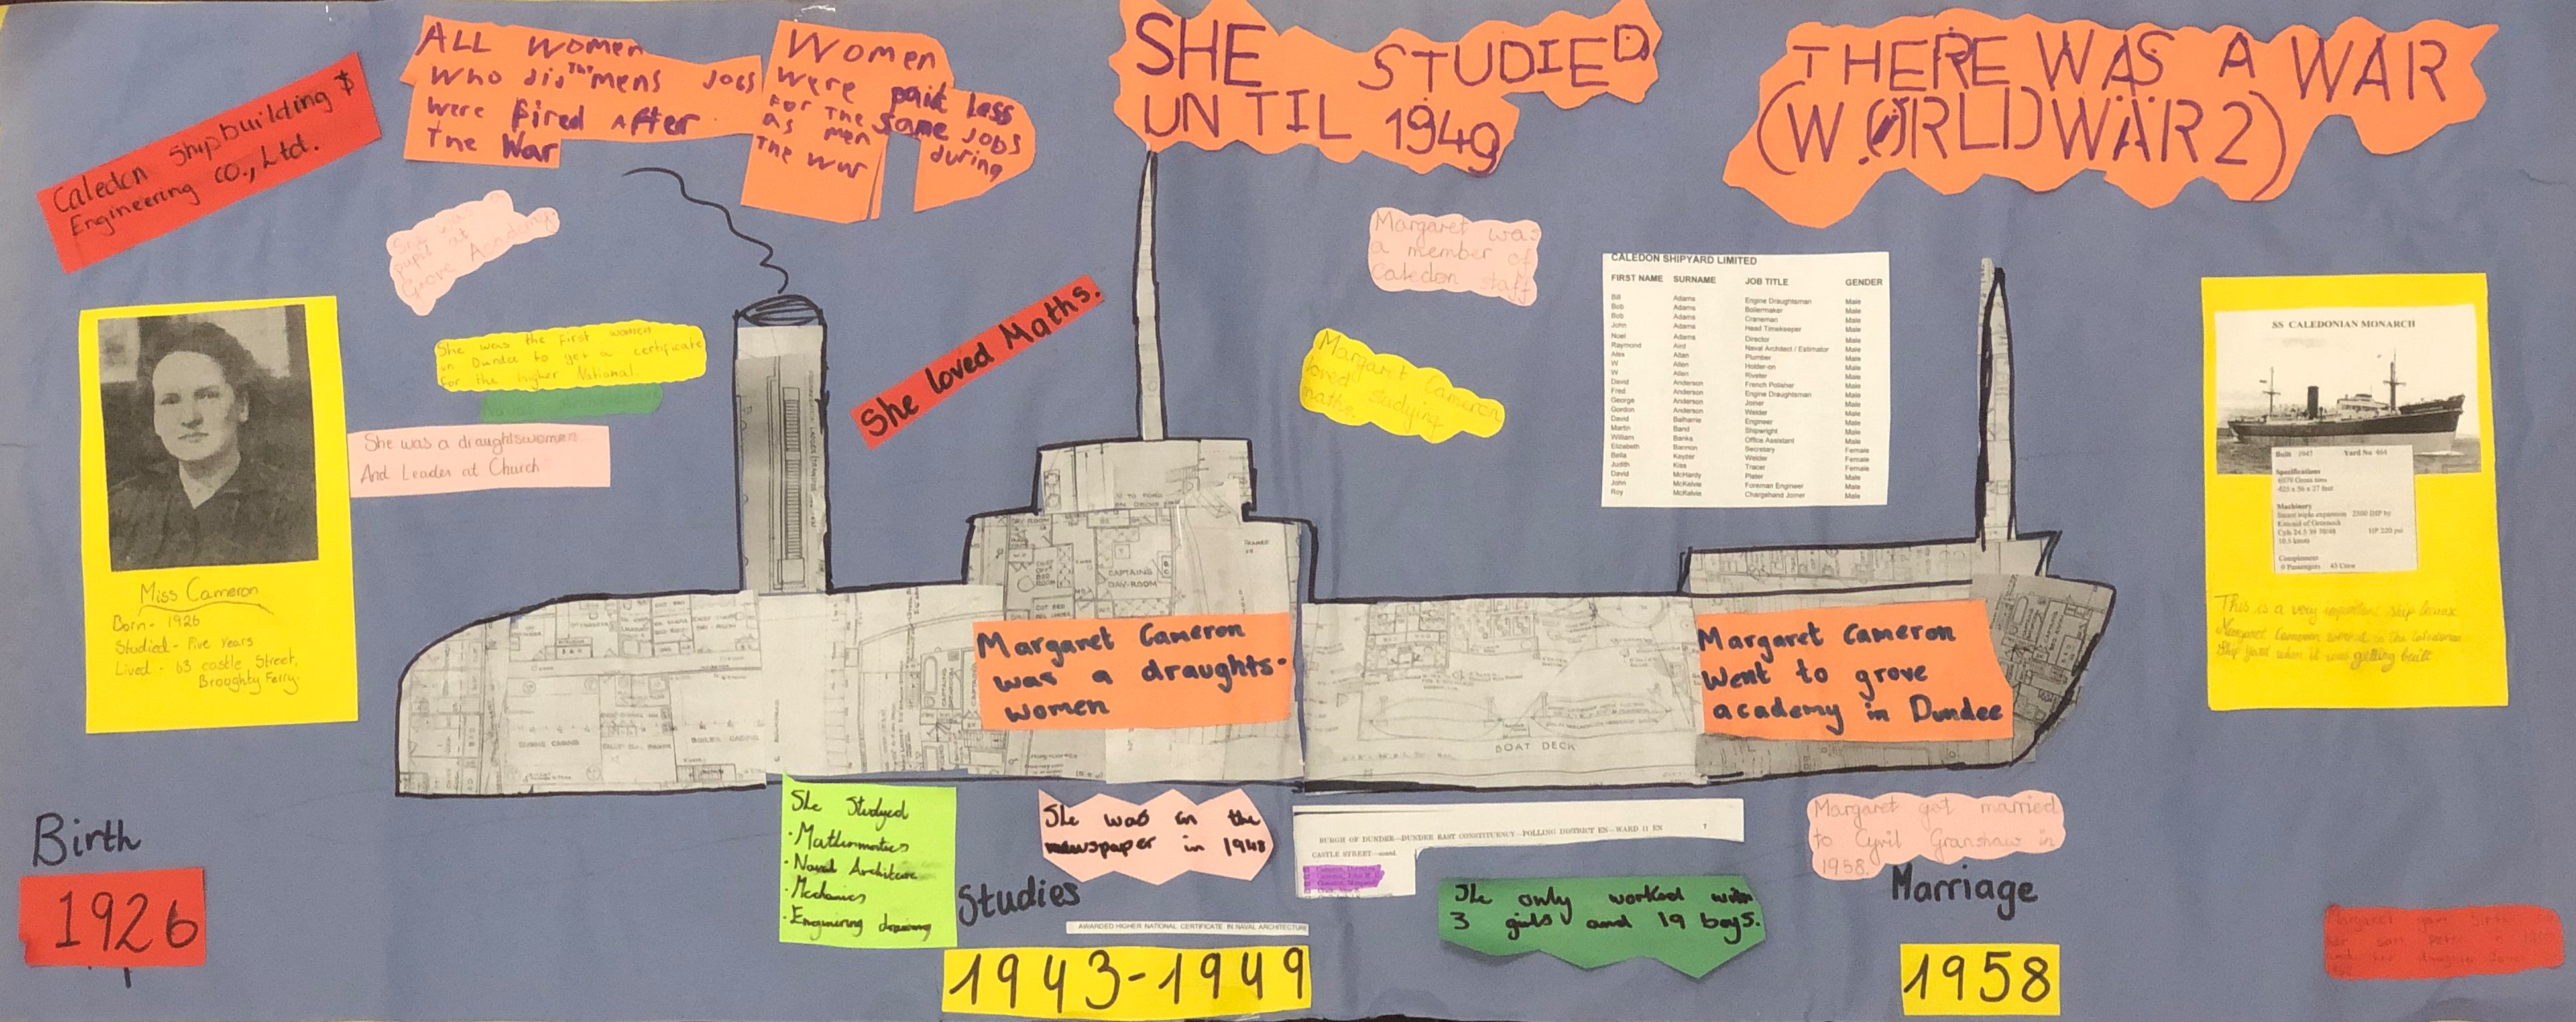 Caledon Shipbuilding $
Engineering CO., Ltd.
ALL women
who did The mens jobs
were fired after
The War
Women
were paid less
for the same jobs
as men during
The war
SHE STUDIED
UNTIL 1949
THERE WAS A WAR
(WORLD WAR 2)
She was a
pupil at
Grove Academy.
She was the first women
in Dundee to get a certificate
for the higher National.
Naval Architecture
She was a draughtswomen
And Leader at Church
Miss Cameron
Born - 1926
Studied - Five Years
Lived - 63 castle Street,
Broughty Ferry.
She loved Maths.
Margaret was
a member of
Caledon staff
Margaret Cameron
loved studying
maths.
CALEDON SHIPYARD LIMITED
FIRST NAME SURNAME JOB TITLE GENDER
Bill Adams Engine Draughtsman Male
Bob Adams Boilermaker Male
Bob Adams Craneman Male
John Adams Head Timekeeper Male
Noel Adams Director Male
Raymond Aird Naval Architect / Estimator Male
Alex Allan Plumber Male
W Allen Holder-on Male
W Allen Riveter Male
David Anderson French Polisher Male
Fred Anderson Engine Draughtsman Male
George Anderson Joiner Male
Gordon Anderson Welder Male
David Balharrie Engineer Male
Martin Band Shipwright Male
William Banks Office Assistant Male
Elizabeth Bannon Secretary Female
Bella Keyzer Welder Female
Judith Kiss Tracer Female
David McHardy Plater Male
John McKelvie Foreman Engineer Male
Roy McKelvie Chargehand Joiner Male
SS CALEDONIAN MONARCH
Built 1947 Yard No 464
Specifications
Gross tons
425 x 56 x 27 feet
Machinery
Steam triple expansion 2500 IHP by
Kincaid of Greenock
HP 220 psi
10.5 knots
Complement
0 Passengers 43 Crew
This is a very important ship because
Margaret Cameron worked in the Caledonian
Ship yard when it was getting built
CAPTAINS
DAY-ROOM
BOILER CASING
BOAT DECK
Margaret Cameron
was a draughts-
women
Margaret Cameron
went to grove
academy in Dundee
Birth
1926
She Studyed
· Mathematics
· Naval Architecure
· Mechanics
· Enginiring drawing
She was in the
newspaper in 1948
Studies
AWARDED HIGHER NATIONAL CERTIFICATE IN NAVAL ARCHITECTURE
1943-1949
BURGH OF DUNDEE—DUNDEE EAST CONSTITUENCY—POLLING DISTRICT EN—WARD 11 EN 7
CASTLE STREET—contd.
She only worked with
3 girls and 19 boys.
Margaret got married
to Cyril Granshaw in
1958.
Marriage
1958
Margaret gave birth to
her son Peter in
and her daughter